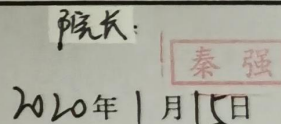 院长:
秦强
2020年1月15日